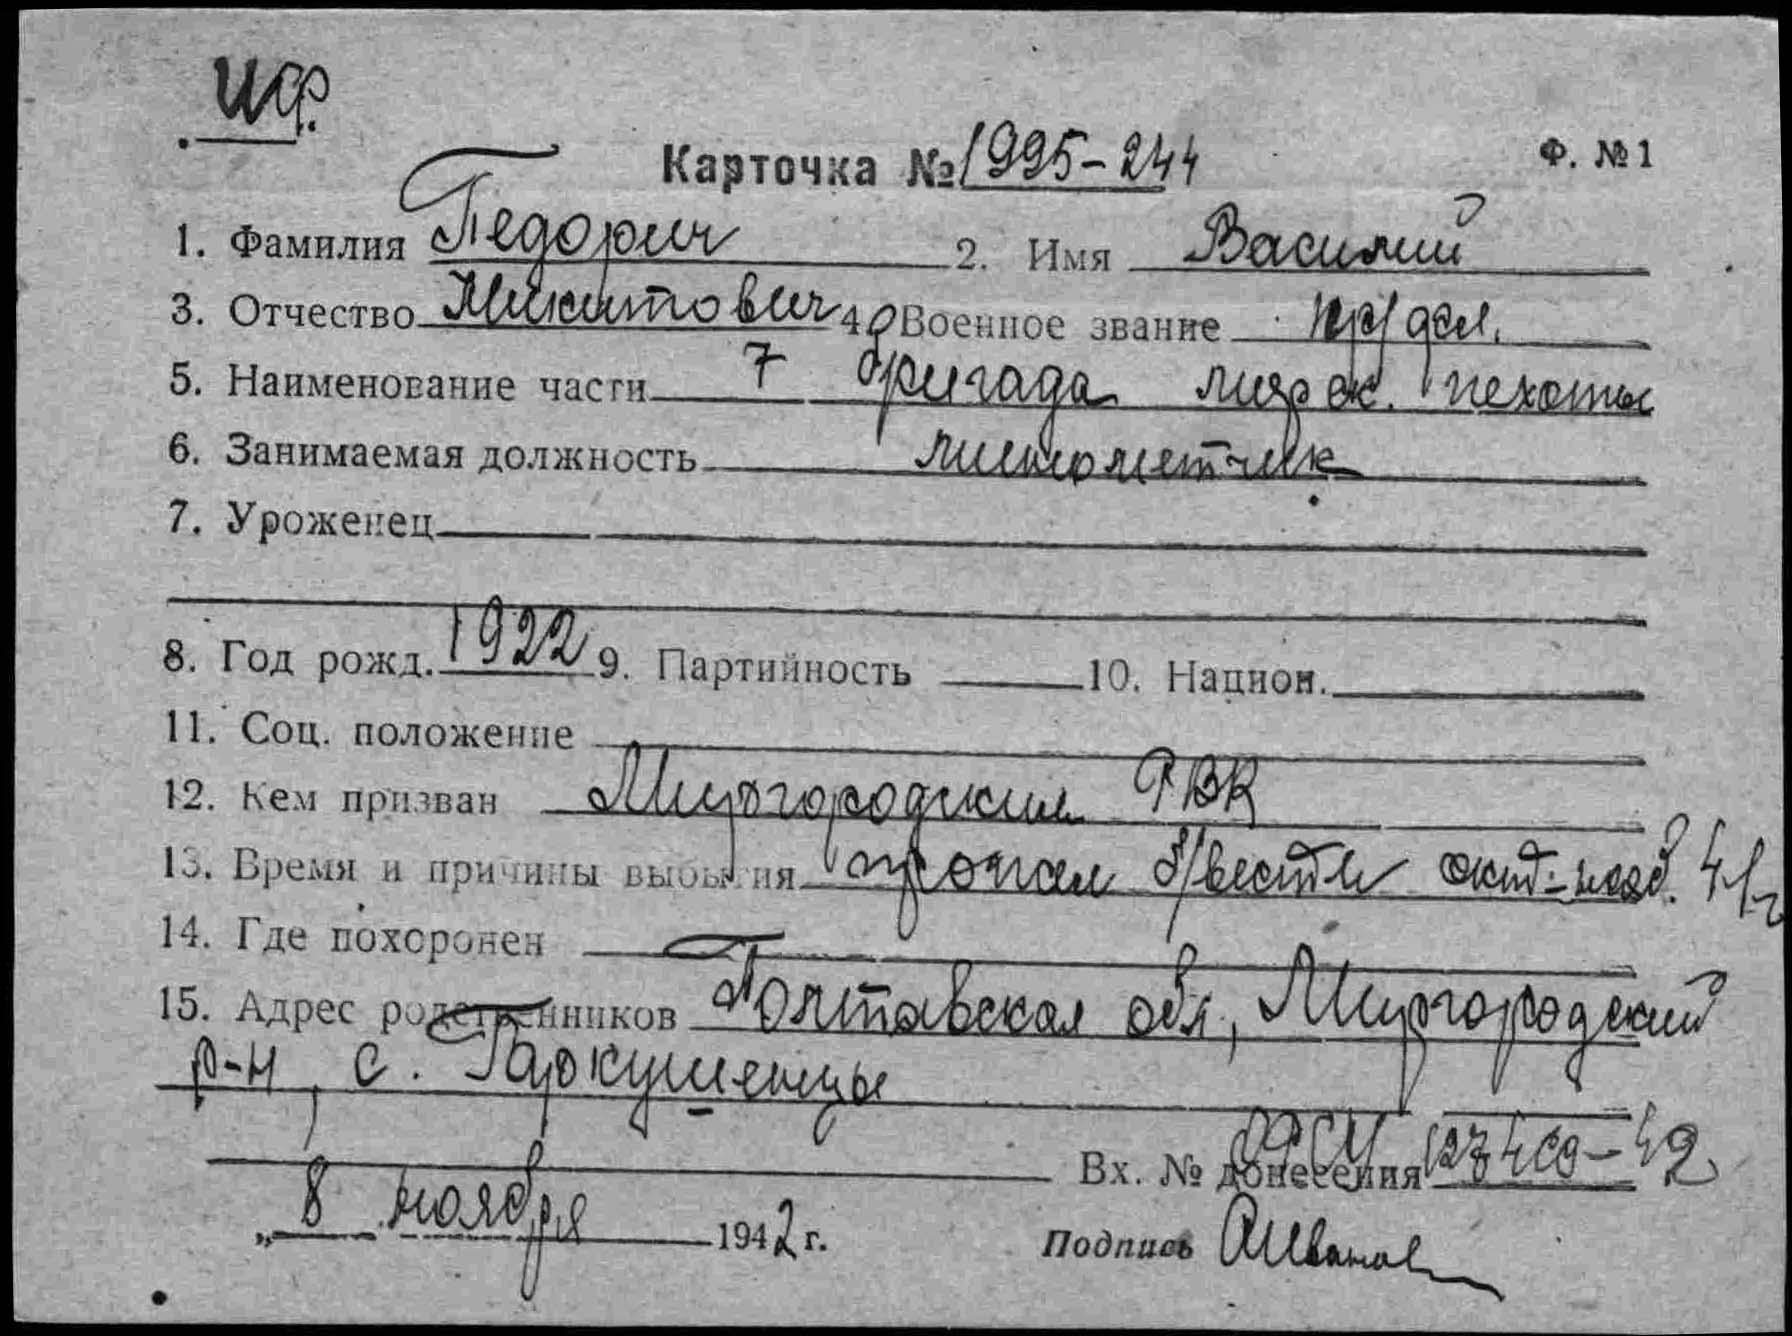 ИФ.
Карточка № 1995-244 Ф. №1
1. Фамилия Педорич 2. Имя Василий
3. Отчество Никитович 4. Военное звание кр/фл.
5. Наименование части 7 бригада морск. пехоты
6. Занимаемая должность минометчик
7. Уроженец
8. Год рожд. 1922 9. Партийность 10. Национ.
11. Соц. положение
12. Кем призван Миргородским РВК
13. Время и причины выбытия пропал б/вести окт-нояб. 41г
14. Где похоронен
15. Адрес родственников Полтавская обл, Миргородский
р-н, с. Гаркушенцы
Вх. № донесения 42
„ 8 ноября 1942 г. Подпись АИванов